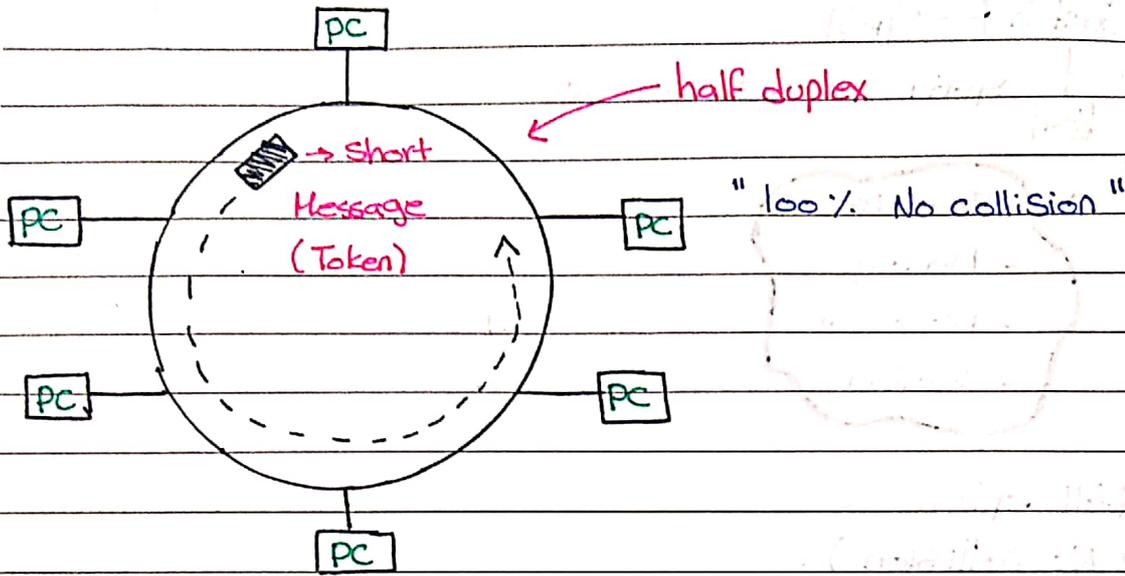 PC
half duplex
→ Short
Message
(Token)
PC
PC
"100% No collision"
PC
PC
PC